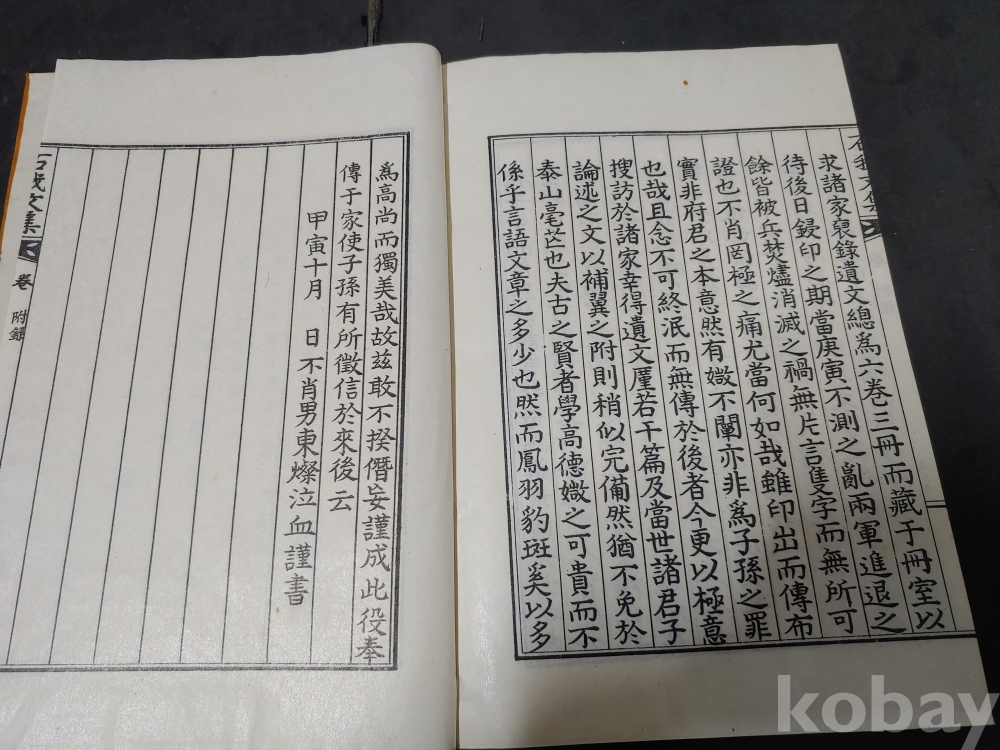 求諸家裒錄遺文總爲六卷三冊而藏于冊室以
待後日鋟印之期當庚寅不測之亂兩軍進退之
餘皆被兵焚燼消滅之禍無片言隻字而無所可
證也不肖罔極之痛尤當何如哉雖印出而傳布
實非府君之本意然有媺不闡亦非爲子孫之罪
也哉且念不可終泯而無傳於後者今更以極意
搜訪於諸家幸得遺文厪若干篇及當世諸君子
論述之文以補翼之附則稍似完備然猶不免於
泰山毫芒也夫古之賢者學高德媺之可貴而不
係乎言語文章之多少也然而鳳羽豹斑奚以多
爲高尚而獨美哉故玆敢不揆僭妄謹成此役奉
傳于家使子孫有所徵信於來後云
甲寅十月 日不肖男東燦泣血謹書
文集
卷 附錄
kobay